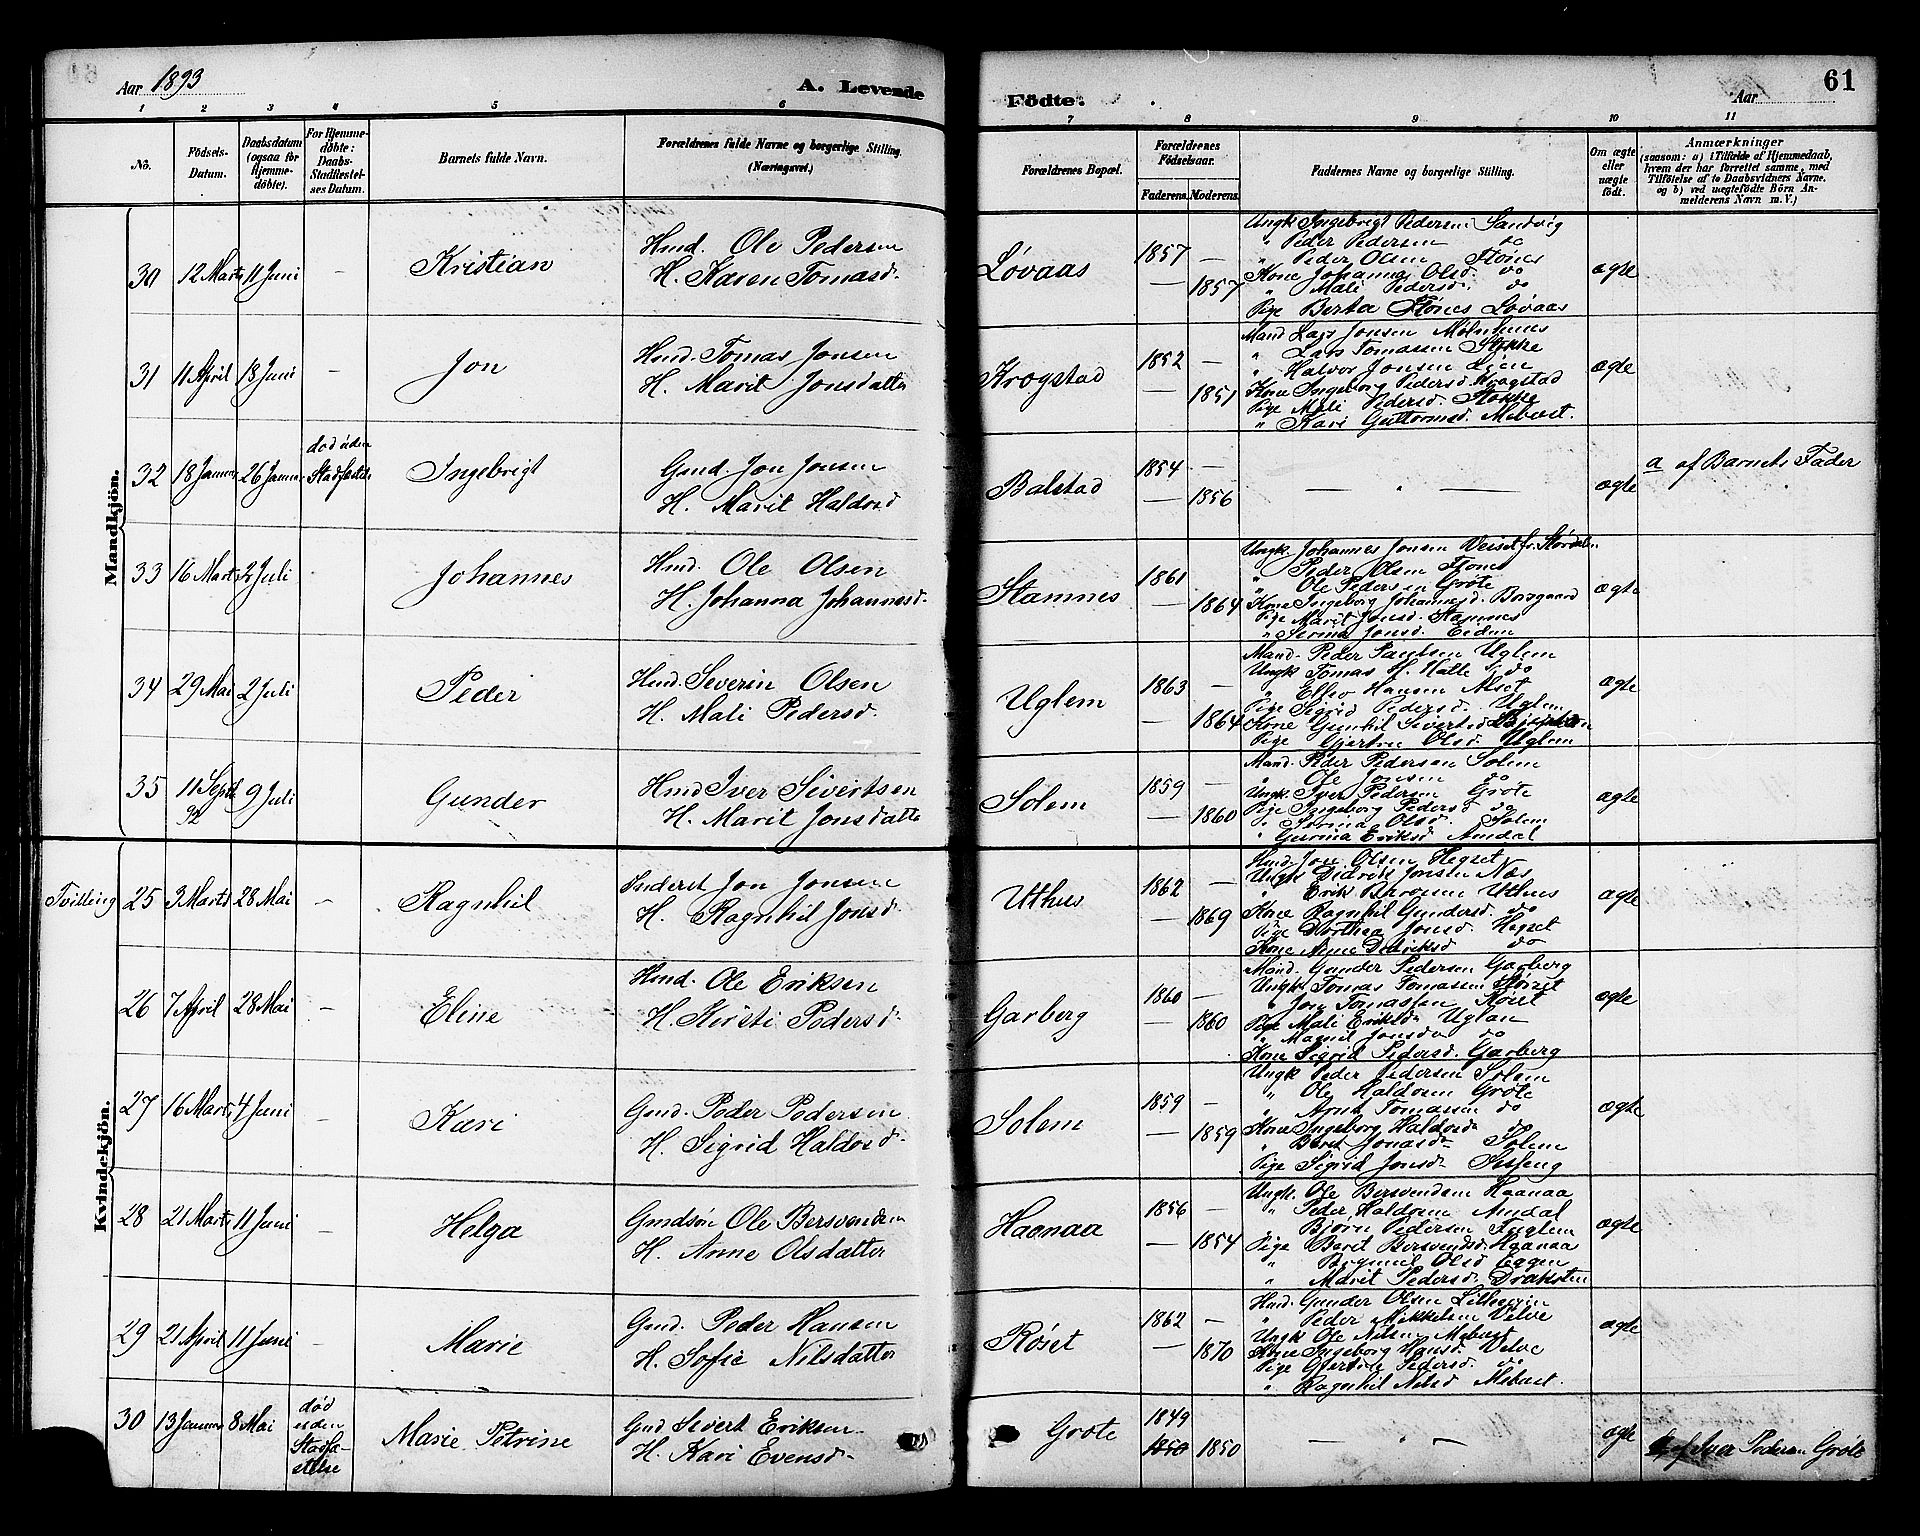 Aar 1893
A. Levende
Födte.
Aar
61
1 2 3 4 5 6 7 8 9 10 11
No.
Födsels-
Datum.
Daabsdatum
(ogsaa for
Hjemme-
döbte).
For Hjemme-
döbte:
Daabs-
Stadfæstel-
ses Datum.
Barnets fulde Navn.
Forældrenes fulde Navne og borgerlige Stilling.
(Næringsvei.)
Forældrenes Bopæl.
Forældrenes
Födselsaar.
Faderens. Moderens.
Faddernes Navne og borgerlige Stilling.
Om ægte
eller
uægte
födt.
Anmærkninger
(saasom: a) i Tilfælde af Hjemmedaab,
hvem der har forrettet samme, med
Tilföielse af to Daabsvidners Navne.
og b) ved uægtefödte Börn An-
melderens Navn m. V.)
Mandkjön.
30 12 Marts 11 Juni – Kristian
Hmd. Ole Pedersen
H. Karen Tomasd.
Løvaas 1857 – – 1857
Ungk. Ingebrigt Pedersen Sandvig
" Peder Pedersen do
" Peder Olsen Flønes
Kone Johanna Olsd. do
" Mali Pedersd. do
Pige Berta Flønes Løvaas
ægte
31 11 April 18 Juni – Jon
Hmd. Tomas Jonsen
H. Marit Jonsdatter
Krogstad 1852 – – 1851
Mand Lars Jonsen
" Lars Tomassen Stokke
" Halvor Jonsen
Kone Ingeborg Pedersd. Krogstad
Pige Mali Pedersd. Stokke
" Kari Guttormsd. Mebust.
ægte
32 18 Januar 26 Januar
død uden
Stadfæstelse
Ingebrigt
Gmd. Jon Jonsen
H. Marit Haldosd
Balstad 1854 – – 1856
– " –
ægte
a af Barnets Fader
33 16 Marts 2 Juli Johannes
Hmd. Ole Olsen
H. Johanna Johannesd.
Stamnes 1861 – 1864
Ungk. Johannes Jonsen fr. Størdalen
" Peder Olsen Flønes
" Ole Pedersen Grøte
Kone Ingeborg Johannesd. Borsgaard
Pige Marit Jonsd. Stamnes
" Jonsd. Eidem
ægte
34 29 Mai 2 Juli Peder
Hmd. Severin Olsen
H. Mali Pedersd.
Uglem 1863 – – 1864
Mand. Peder Paulsen Uglem
Ungk Tomas H. Halle do
" Ellev Hansen Alset
Pige Sigrid Pedersd. Uglem
Kone Gunhil Sivertsd
Pige Gjertru Olsd. Uglem
ægte
35 11 Septb 92 9 Juli Gunder
Hmd Iver Sivertsen
H. Marit Jonsdatter
Solem 1859 – – 1860
Mand. Peder Pedersen Solem
" Ole Jonsen do
Ungk Iver Pedersen Grøte
Pige Ingeborg Pedersd do
" Olsd. Solem
" Gurina Eriksd Amdal
ægte
Kvindekjön.
Tvilling 25 3 Marts 28 Mai – Ragnhil
Inderst Jon Jonsen
H. Ragnhil Jonsd.
Uthus 1862 – – 1869
Hmd. Jon Olsen Hegset
Ungk Didrik Jonsen Næs
" Erik Uthus
Kone Ragnhil Gundersd. do
Pige Dorthea Jonsd. Hegset
Kone Anne Didriksd do
ægte
26 7 April 28 Mai – Eline
Hmd. Ole Eriksen
H. Kirsti Pedersd.
Garberg 1860 – – 1860
Mand. Gunder Pedersen Garberg
Ungk Tomas Tomassen
" Jon Tomassen Røset
Pige Mali Eriksdr Uglan
" Magnil Jonsdr do
Kone Sigrid Pedersd. Garberg
ægte
27 16 Marts 4 Juni – Kari
Gmd. Peder Pedersen
H. Sigrid Haldosd.
Solem 1859 – – 1859
Ungk Peder Pedersen Solem
" Ole Haldosen Grøte
" Arnt Tomassen do
Kone Ingeborg Haldosd. do
" Beret Jonasdr Solem
Pige Sigrid Jonsdr
ægte
28 21 Marts 11 Juni – Helga
Gmdsøn Ole Bersvendsen
H. Anne Olsdatter
Haanaa 1856 – – 1854
Ungk. Ole Bersvendsen Haanaa
" Peder Haldosen Amdal
" Bjørn Pedersen Fuglem
Pige Beret Bersvendsd. Haanaa
" Olsd Eggen
" Marit Pedersd. Draksten
ægte
29 21 April 11 Juni – Marie
Gmd. Peder Hansen
H. Sofie Nilsdatter
Røset 1862 – – 1870
Hmd. Gunder Olsen
" Peder Mikkelsen Velve
Ungk Ole Nilsen Mebust
Kone Ingeborg Hansd. Velve
Pige Gjertrude Pedersd. do
" Ragnhil Nilsd Mebust.
ægte
30 13 Januar 8 Mai
død
uden
Stadfæ-
stelse
Marie Petrine
Gmd Sivert Eriksen
H. Kari Evensd.
Grøte 1849 1850 1850
– " –
ægte
a af Iver Pedersen Grøte